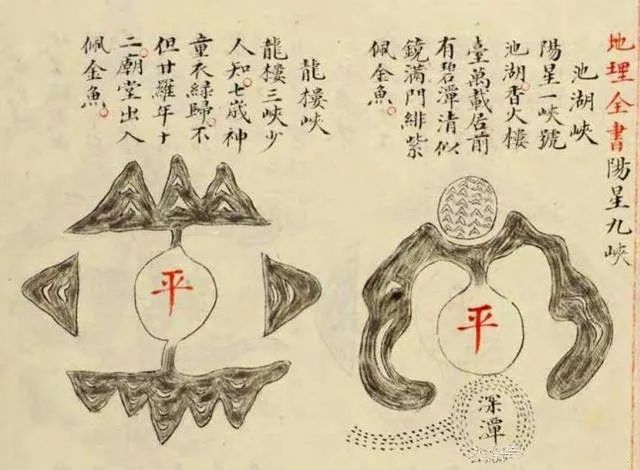 地理全書陽星九峽
池湖峽
陽星一峽號
池湖香火樓
臺萬載居前
有碧潭清似
鏡滿門緋紫
佩金魚
平
深潭
龍樓峽
龍樓三峽少
人知七歲神
童衣綠歸不
但甘羅年十
二廟堂出入
佩金魚
平